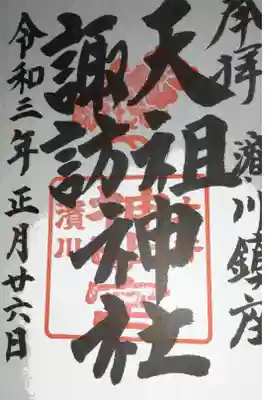 奉拝 濱川鎮座
天祖
諏訪
神社
令和三年正月廿六日
濱川